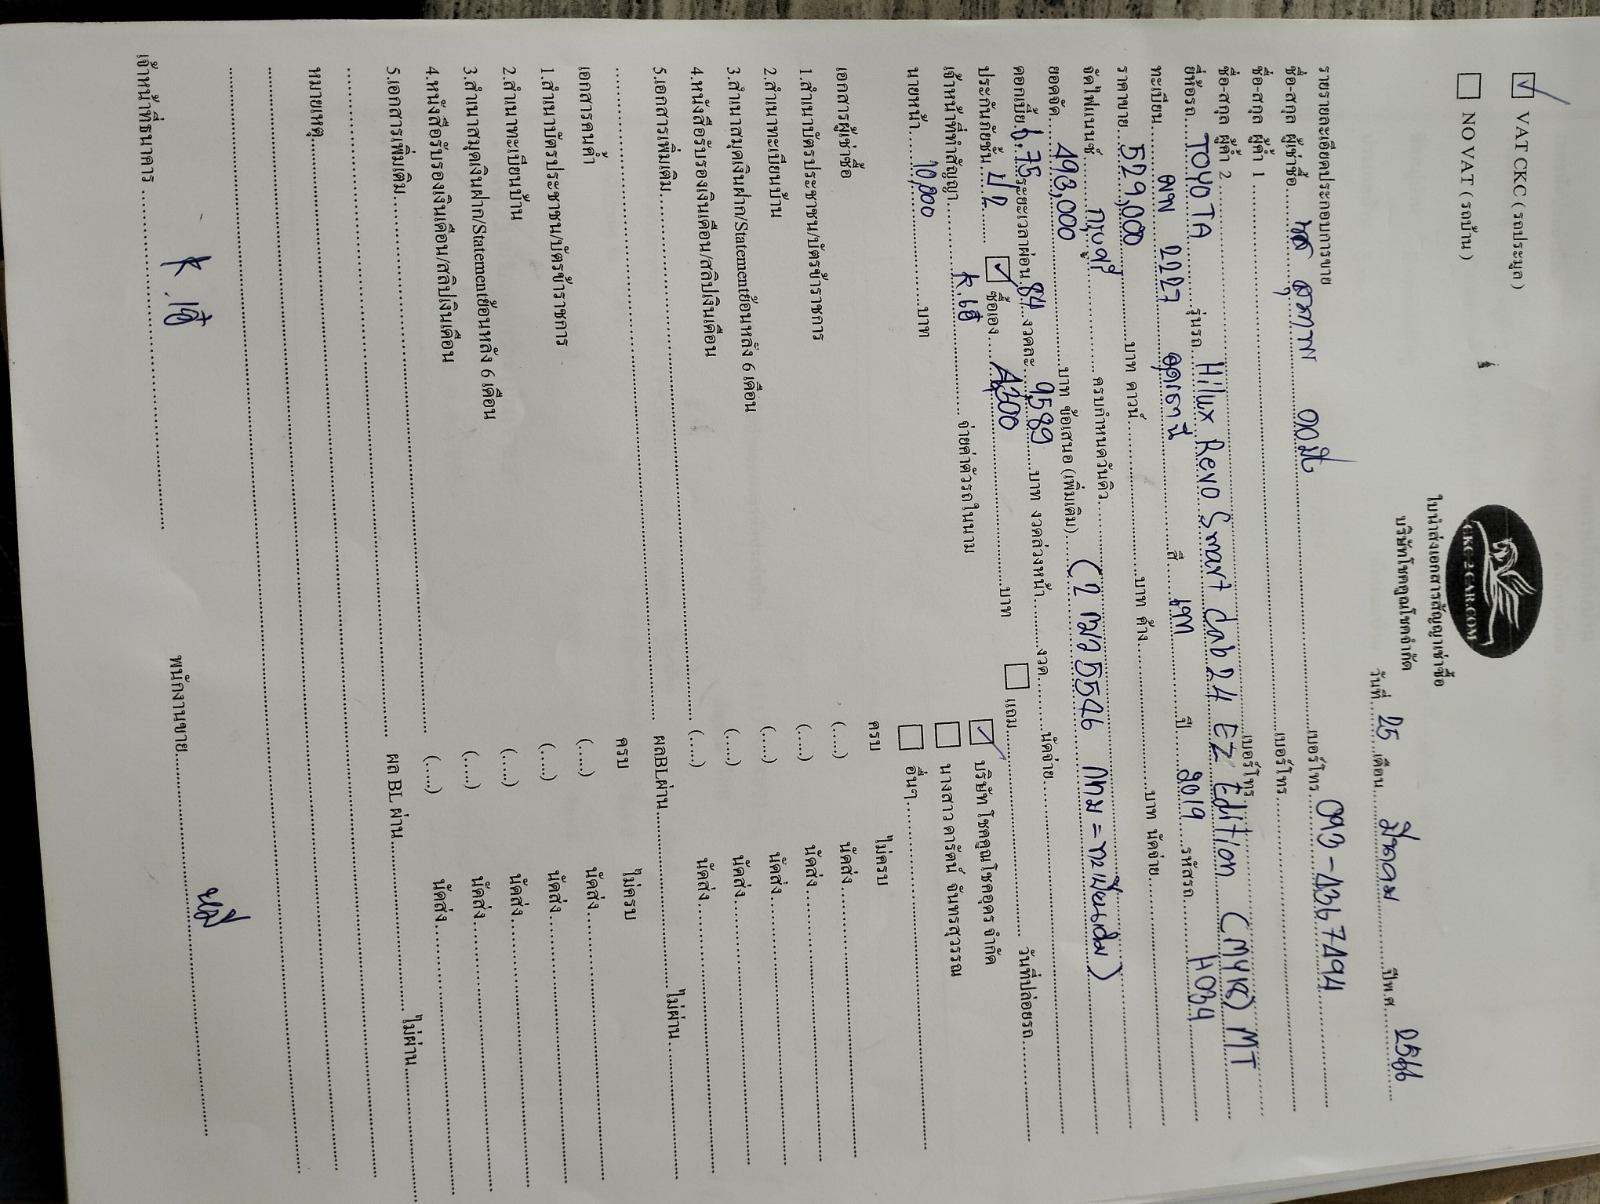 VAT CKC ( รถประมูล )
NO VAT ( รถบ้าน )
CKC-2 CAR.COM
ใบนำส่งเอกสารสัญญาเช่าซื้อ
บริษัทโชคคูณโชคจำกัด
วันที่ 25 เดือน มีนาคม ปีพ.ศ. 2566
รายรายละเอียดประกอบการขาย
ชื่อ-สกุล ผู้เช่าซื้อ เบอร์โทร 093-4367494
ชื่อ-สกุล ผู้ค้ำ 1 เบอร์โทร
ชื่อ-สกุล ผู้ค้ำ 2 เบอร์โทร
ยี่ห้อรถ TOYOTA รุ่นรถ Hilux Revo Smart Cab 2.4 EZ Edition (MY18) MT
ทะเบียน 2227 อุดรธานี สี เทา ปี 2019 รหัสรถ H034
ราคาขาย 529,000 บาท ดาวน์ บาท ค้าง บาท นัดจ่าย
จัดไฟแนนซ์ กรุงศรี ครบกำหนดวันคิว
ยอดจัด 493,000 บาท ข้อเสนอ (เพิ่มเติม) 5546 กทม = ทะเบียนเดิม)
ดอกเบี้ย 6.75 ระยะเวลาผ่อน 84 งวดละ 9,589 บาท งวดล่วงหน้า งวด นัดจ่าย
ประกันภัยชั้น ป/2 ซื้อเอง บาท แถม วันที่ปล่อยรถ
เจ้าหน้าที่ทำสัญญา K.เอ๋ จ่ายค่าตัวรถในนาม บริษัท โชคคูณโชคอุดร จำกัด
นายหน้า 10,000 บาท นางสาว ดารัตน์ จันทรสุวรรณ
อื่นๆ
เอกสารผู้เช่าซื้อ ครบ ไม่ครบ
1.สำเนาบัตรประชาชน/บัตรข้าราชการ (....) นัดส่ง
2.สำเนาทะเบียนบ้าน (....) นัดส่ง
3.สำเนาสมุดเงินฝาก/Statementย้อนหลัง 6 เดือน (....) นัดส่ง
4.หนังสือรับรองเงินเดือน/สลิปเงินเดือน (....) นัดส่ง
5.เอกสารเพิ่มเติม (....) นัดส่ง
ผลBLผ่าน ไม่ผ่าน
เอกสารคนค้ำ ครบ ไม่ครบ
1.สำเนาบัตรประชาชน/บัตรข้าราชการ (....) นัดส่ง
2.สำเนาทะเบียนบ้าน (....) นัดส่ง
3.สำเนาสมุดเงินฝาก/Statementย้อนหลัง 6 เดือน (....) นัดส่ง
4.หนังสือรับรองเงินเดือน/สลิปเงินเดือน (....) นัดส่ง
5.เอกสารเพิ่มเติม (....) นัดส่ง
ผล BL ผ่าน ไม่ผ่าน
หมายเหตุ
เจ้าหน้าที่ธนาคาร K.เอ๋ พนักงานขาย